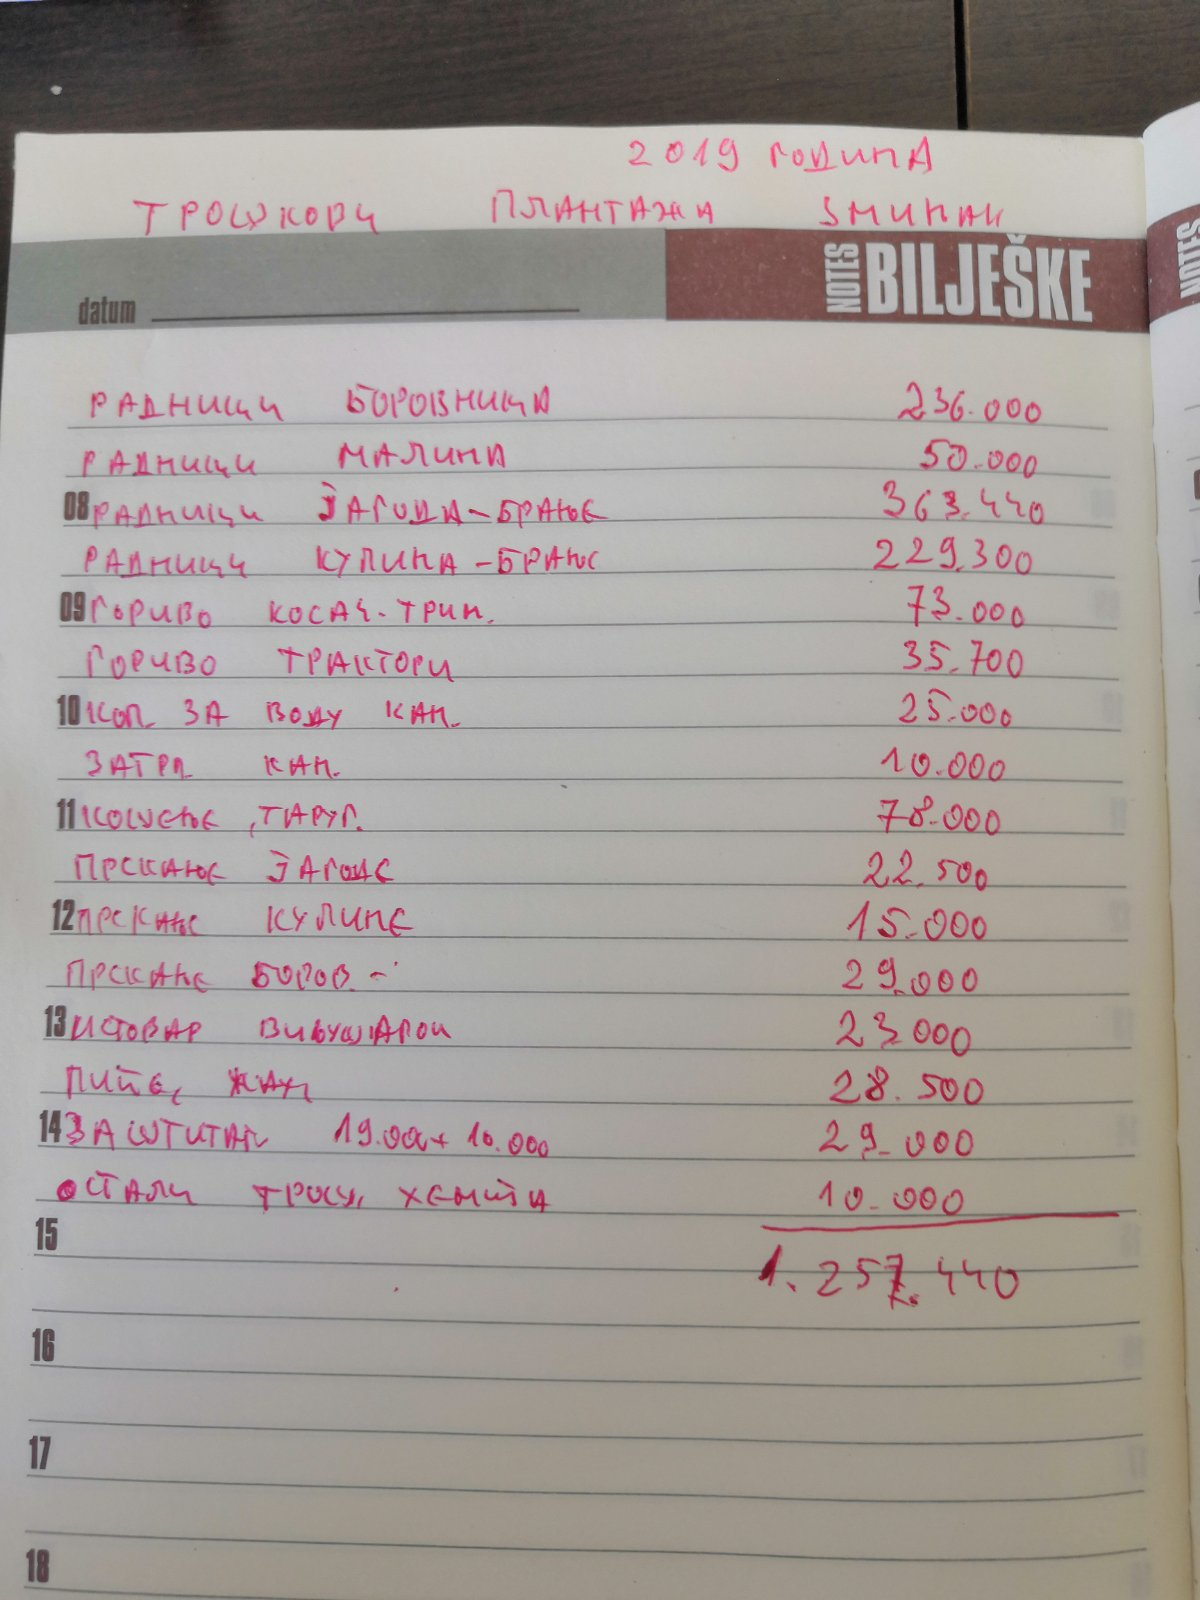 2019 ГОДИНА
ТРОШКОВИ ПЛАНТАЖА ЗМИНАК
datum
NOTES BILJEŠKE
NOTES
РАДНИЦИ БОРОВНИЦА 236.000
РАДНИЦИ МАЛИНА 50.000
08 РАДНИЦИ ЈАГОДА-БРАЊЕ 363.440
РАДНИЦИ КУПИНА-БРАЊЕ 229.300
09 ГОРИВО КОСАЧ. ТРИМ. 73.000
ГОРИВО ТРАКТОРИ 35.700
10 КОП. ЗА ВОДУ КАП. 25.000
ЗАТРП. КАН. 10.000
11 КОШЕЊЕ, ТАРУП. 78.000
ПРСКАЊЕ ЈАГОДЕ 22.500
12 ПРСКАЊЕ КУПИНЕ 15.000
ПРСКАЊЕ БОРОВ. - 29.000
13 ИСТОВАР 23.000
ПИЋЕ, 28.500
14 19.000+10.000 29.000
ОСТАЛИ ТРОШ, ХЕМИЈА 10.000
15
1.257.440
16
17
18